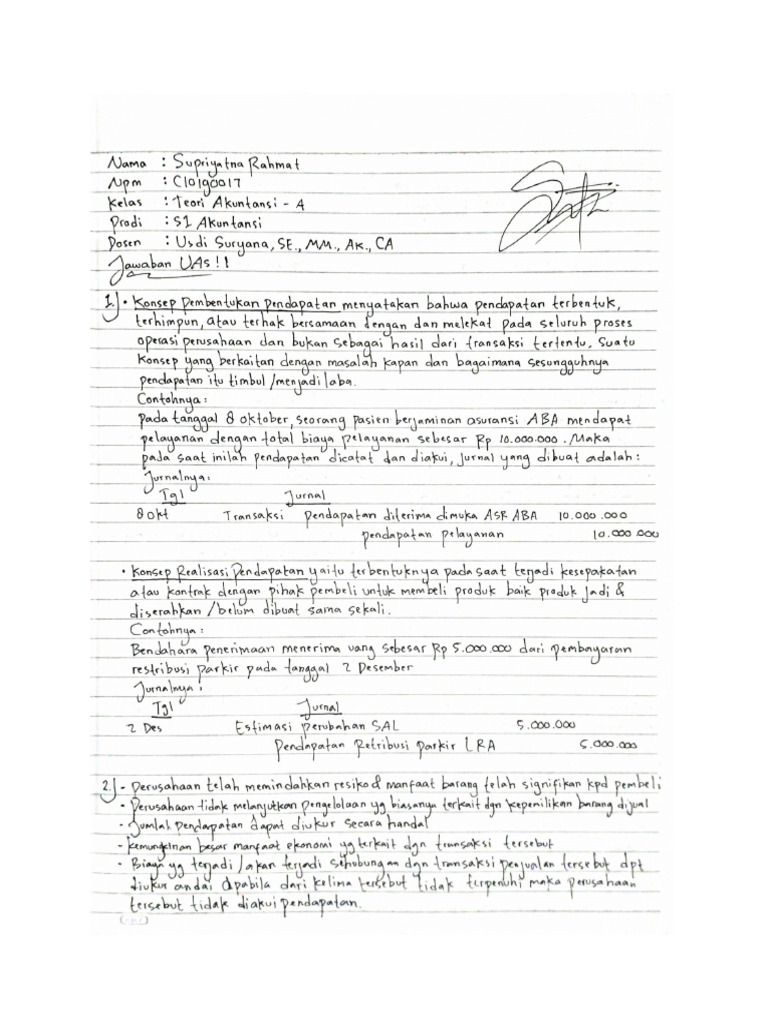 Nama : Supriyatna Rahmat
Npm : C10190017
Kelas : Teori Akuntansi - A
Prodi : S1 Akuntansi
Dosen : Usdi Suryana, SE., MM., Ak., CA
Jawaban UAS!!
1.) • Konsep pembentukan pendapatan menyatakan bahwa pendapatan terbentuk,
terhimpun, atau terhak bersamaan dengan dan melekat pada seluruh proses
operasi perusahaan dan bukan sebagai hasil dari transaksi tertentu, suatu
konsep yang berkaitan dengan masalah kapan dan bagaimana sesungguhnya
pendapatan itu timbul / menjadi laba.
Contohnya :
pada tanggal 8 oktober, seorang pasien berjaminan asuransi ABA mendapat
pelayanan dengan total biaya pelayanan sebesar Rp 10.000.000. Maka
pada saat inilah pendapatan dicatat dan diakui, jurnal yang dibuat adalah :
Jurnalnya :
Tgl Jurnal
8 okt Transaksi pendapatan diterima dimuka ASR ABA 10.000.000
pendapatan pelayanan 10.000.000
• Konsep Realisasi Pendapatan yaitu terbentuknya pada saat terjadi kesepakatan
atau kontrak dengan pihak pembeli untuk membeli produk baik produk jadi &
diserahkan / belum dibuat sama sekali.
Contohnya :
Bendahara penerimaan menerima uang sebesar Rp 5.000.000 dari pembayaran
restribusi parkir pada tanggal 2 Desember
Jurnalnya :
Tgl Jurnal
2 Des Estimasi perubahan SAL 5.000.000
Pendapatan Retribusi parkir LRA 5.000.000
2.) - perusahaan telah memindahkan resiko & manfaat barang telah signifikan kpd pembeli
- Perusahaan tidak melanjutkan pengelolaan yg biasanya terkait dgn kepemilikan barang dijual
- Jumlah pendapatan dapat diukur secara handal
- kemungkinan besar manfaat ekonomi yg terkait dgn transaksi tersebut
- Biaya yg terjadi / akan terjadi sihubungan dgn transaksi penjualan tersebut dpt
diukur andai apabila dari kelima tersebut tidak terpenuhi maka perusahaan
tersebut tidak diakui pendapatan.